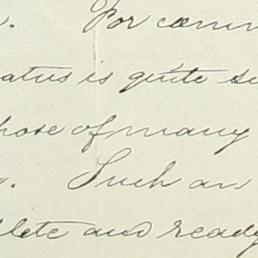 . For comm
atus is quite si
hose of many
. Such an
plete and ready